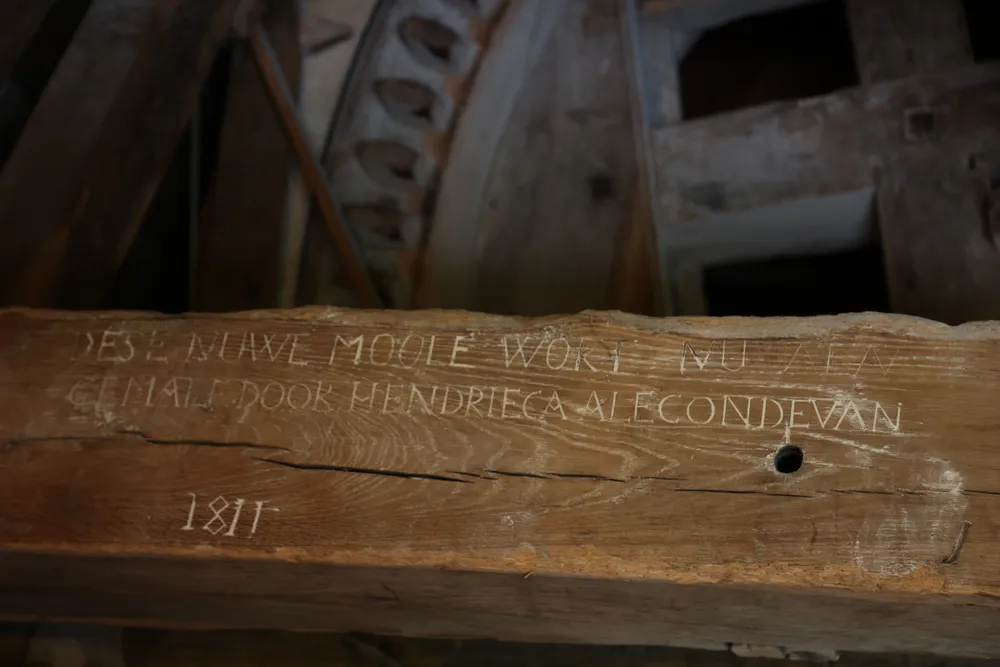 DESE NIAWE MOOLE WORT NU AEN
GEMALE DOOR HENDRIECA ALECONDEVAN
1811